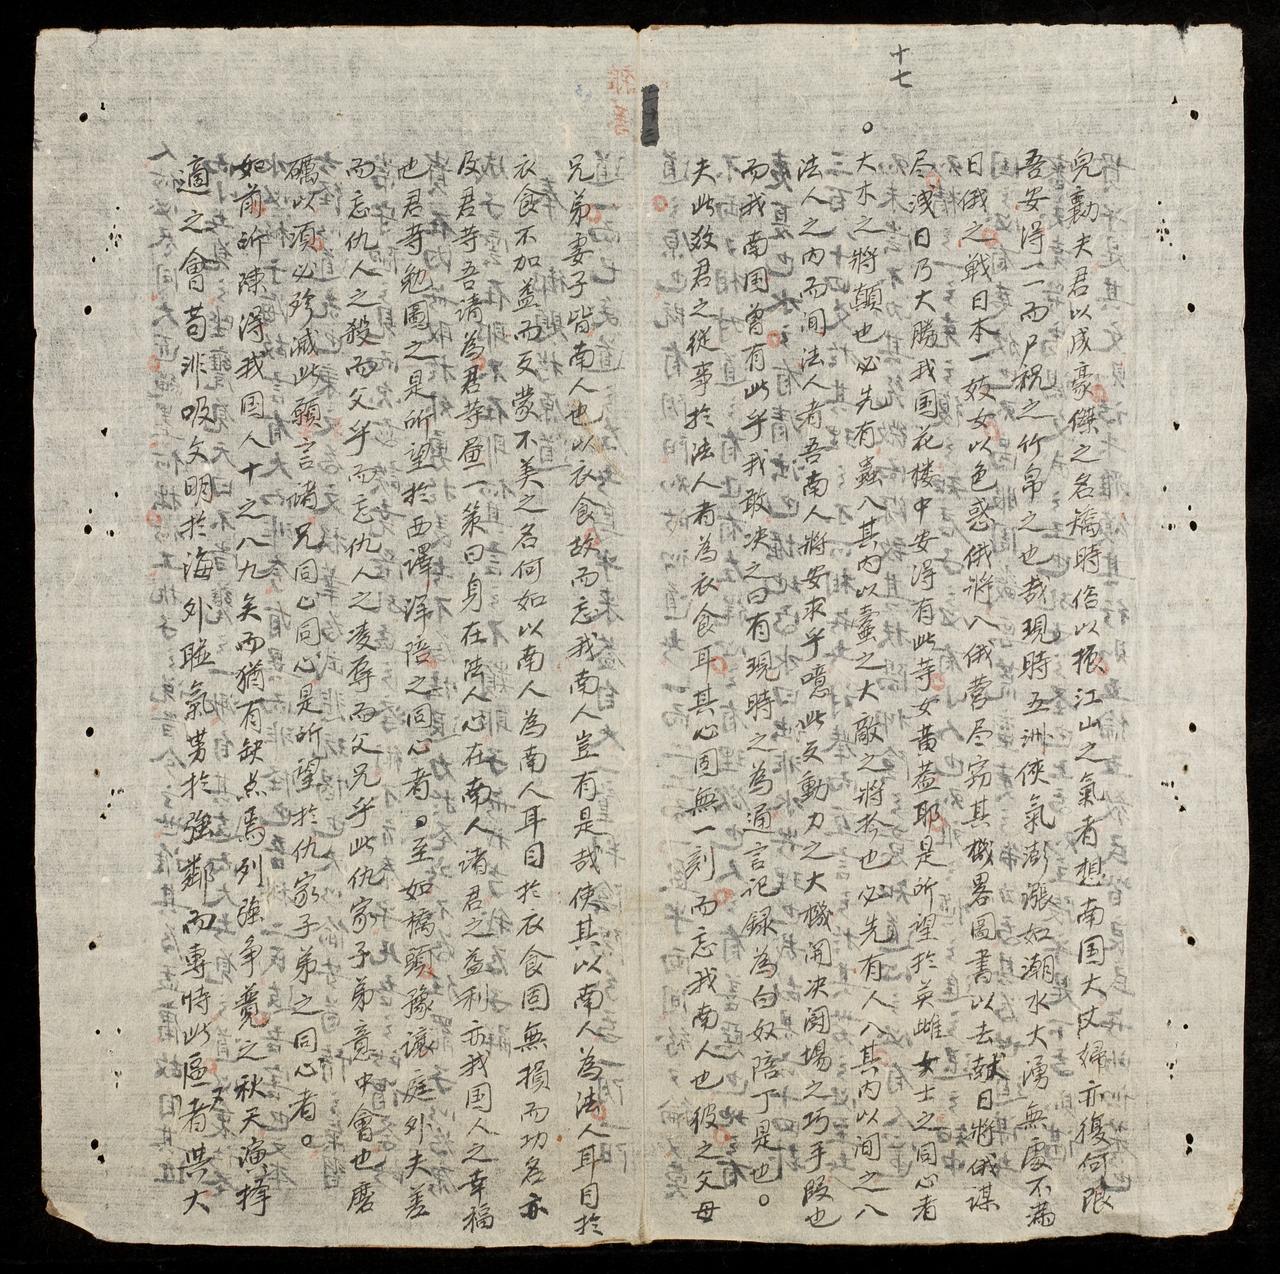 十七
兒勸夫君以成豪傑之名矯時俗以振江山之氣者想南国大丈婦亦復何限
吾安得一一而尸祝之竹帛之也哉現時五洲俠氣澎漲如潮水大湧無處不滿
日俄之戦日本一妓女以色惑俄将入俄營尽窃其機畧圖書以去献日將俄謀
尽洩日乃大勝我国花楼中安得有此等女黄蓋耶是所望於英雌女士之同心者
。大木之將顛也必先有蟲入其内以蠹之大敵之將於也必先有人入其内以间之入
法人之内而间法人者吾南人將安求乎噫此反動力之大機関决闘場之巧手段也
而我南国曾有此乎我敢决之曰有現時之為通言記録為白奴陪丁是也。
夫此数君之從事於法人者為衣食耳其心固無一刻而忘我南人也彼之父母
兄弟妻子皆南人也以衣食故而忘我南人豈有是哉使其以南人為法人耳目於
衣食不加益而反蒙不美之名何如以南人為南人耳目於衣食固無損而功名亦
及君等吾請為君等画一策曰身在法人心在南人诸君之益利亦我国人之幸福
也君等勉圖之是所望於西譯洋陪之同心者。至如橋頭豫讓庭外夫差
而忘仇人之殺而父乎而忘仇人之凌辱而父兄乎此仇家子弟竟中會也磨
礪以湏必殄滅此願言诸兄同心同心是所望於仇家子弟之同心者。
如前所陳得我国人十之八九矣而猶有缺点焉列強争競之秋天演擇
適之會苟非吸文明於海外聯氣势於強鄰而專恃此區々者與大